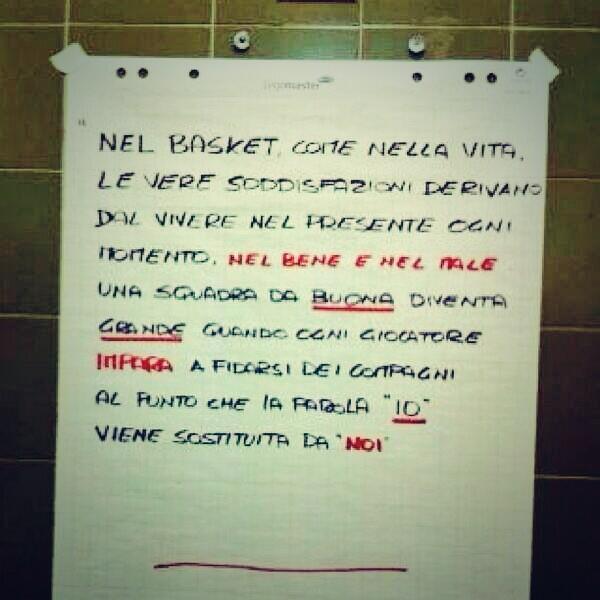 legamaster
"
NEL BASKET, COME NELLA VITA,
LE VERE SODDISFAZIONI DERIVANO
DAL VIVERE NEL PRESENTE OGNI
MOMENTO, NEL BENE E NEL MALE
UNA SQUADRA DA BUONA DIVENTA
GRANDE QUANDO OGNI GIOCATORE
IMPARA A FIDARSI DEI COMPAGNI
AL PUNTO CHE LA PAROLA "IO"
VIENE SOSTITUITA DA "NOI"